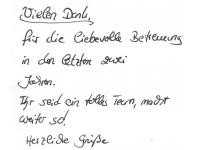 Vielen Dank,
für die liebevolle Betreuung
in den letzten zwei
Jahren.
Ihr seid ein tolles Team, macht
weiter so!
Herzliche Grüße